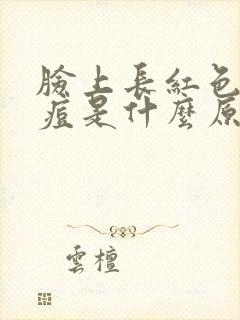 臉上長紅色
痘是什麼原
雲檀